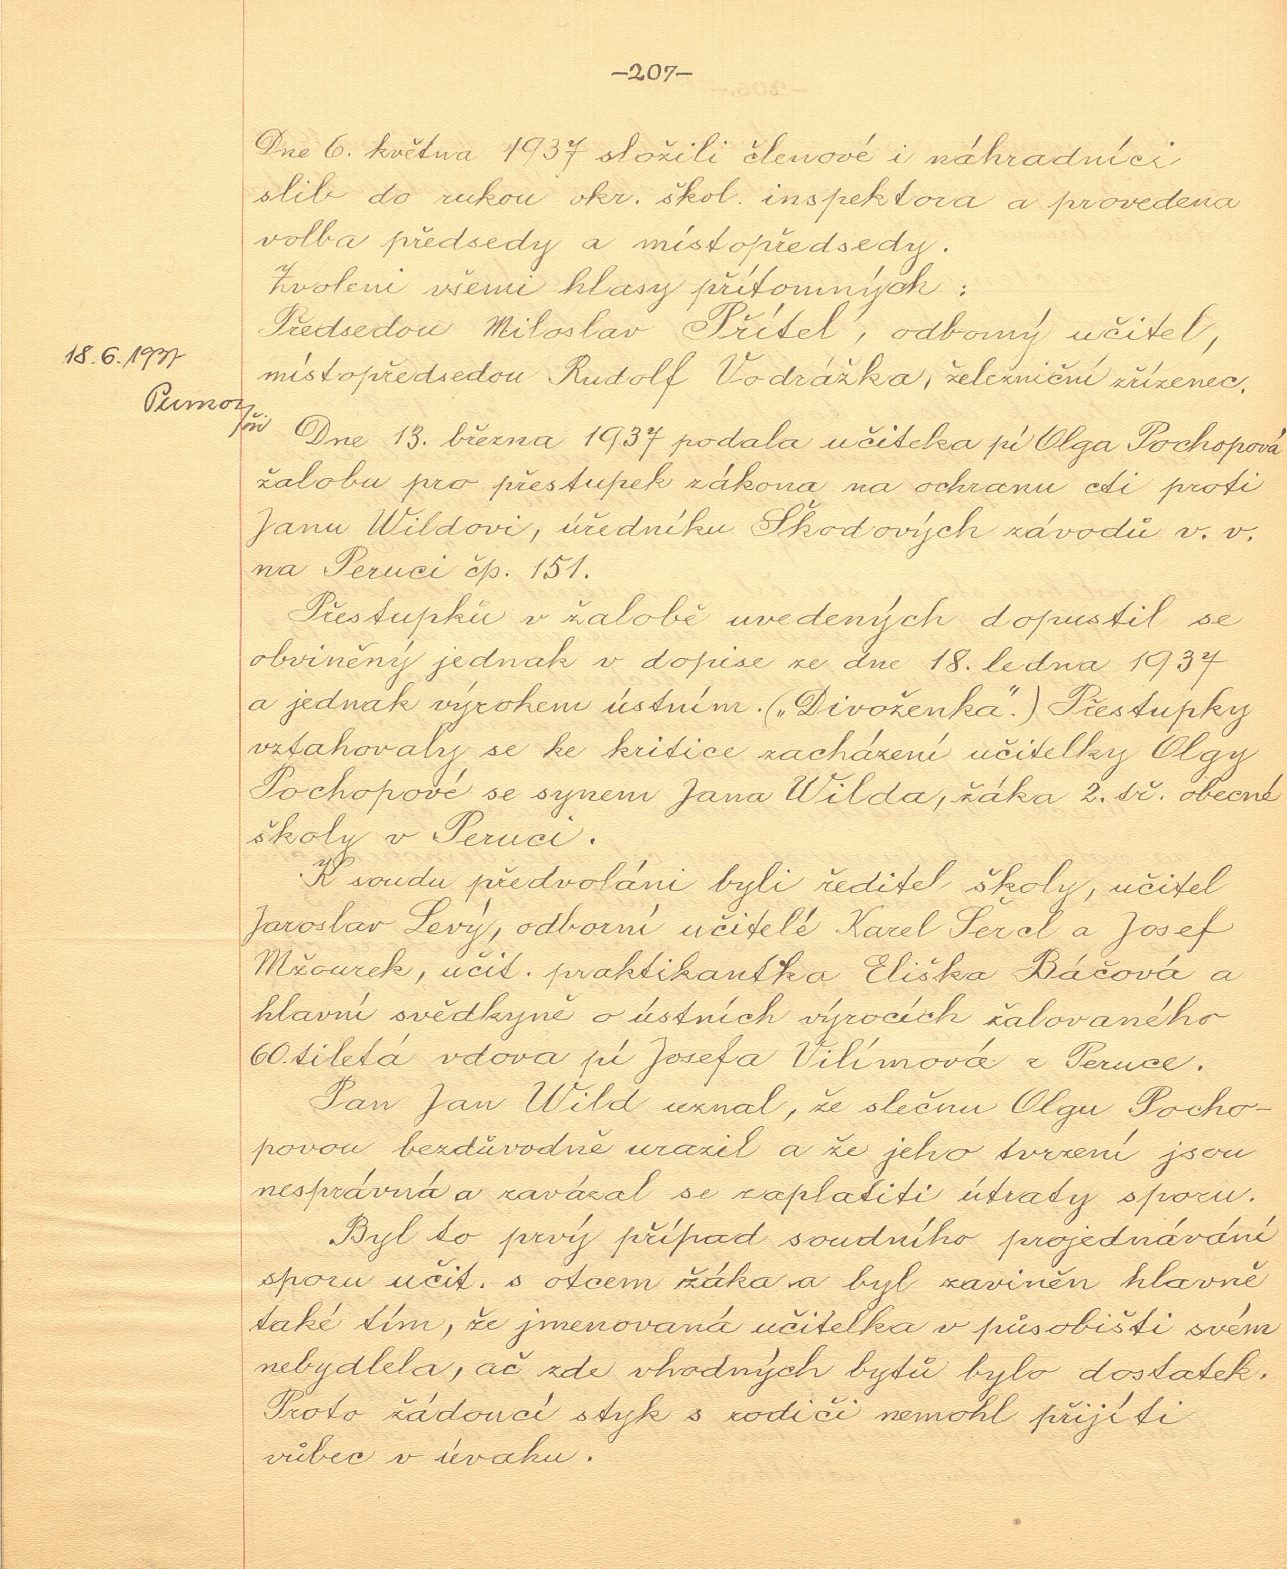 -207-
Dne 6. května 1937 složili členové i náhradníci
slib do rukou okr. škol. inspektora a provedena
volba předsedy a místopředsedy.
Zvoleni všemi hlasy přítomných:
Předsedou Miloslav Přítel, odborný učitel,
18.6.1937
místopředsedou Rudolf Vodrážka, železniční zřízenec.
Dne 13. března 1937 podala učitelka pí Olga Pochopová
žalobu pro přestupek zákona na ochranu cti proti
Janu Wildovi, úředníku Škodových závodů v. v.
na Peruci čp. 151.
Přestupků v žalobě uvedených dopustil se
obviněný jednak v dopise ze dne 18. ledna 1937
a jednak výrokem ústním. („Divoženka“.) Přestupky
vztahovaly se ke kritice zacházení učitelky Olgy
Pochopové se synem Jana Wilda, žáka 2. tř. obecné
školy v Peruci.
K soudu předvoláni byli ředitel školy, učitel
Jaroslav Levý, odborní učitelé Karel Šercl a Josef
Mžourek, učit. praktikantka Eliška Báčová a
hlavní svědkyně o ústních výrocích žalovaného
60tiletá vdova pí Josefa Vilímová z Peruce.
Pan Jan Wild uznal, že slečnu Olgu Pocho-
povou bezdůvodně urazil a že jeho tvrzení jsou
nesprávná a zavázal se zaplatiti útraty sporu.
Byl to prvý případ soudního projednávání
sporu učit. s otcem žáka a byl zaviněn hlavně
také tím, že jmenovaná učitelka v působišti svém
nebydlela, ač zde vhodných bytů bylo dostatek.
Proto žádoucí styk s rodiči nemohl přijíti
vůbec v úvahu.